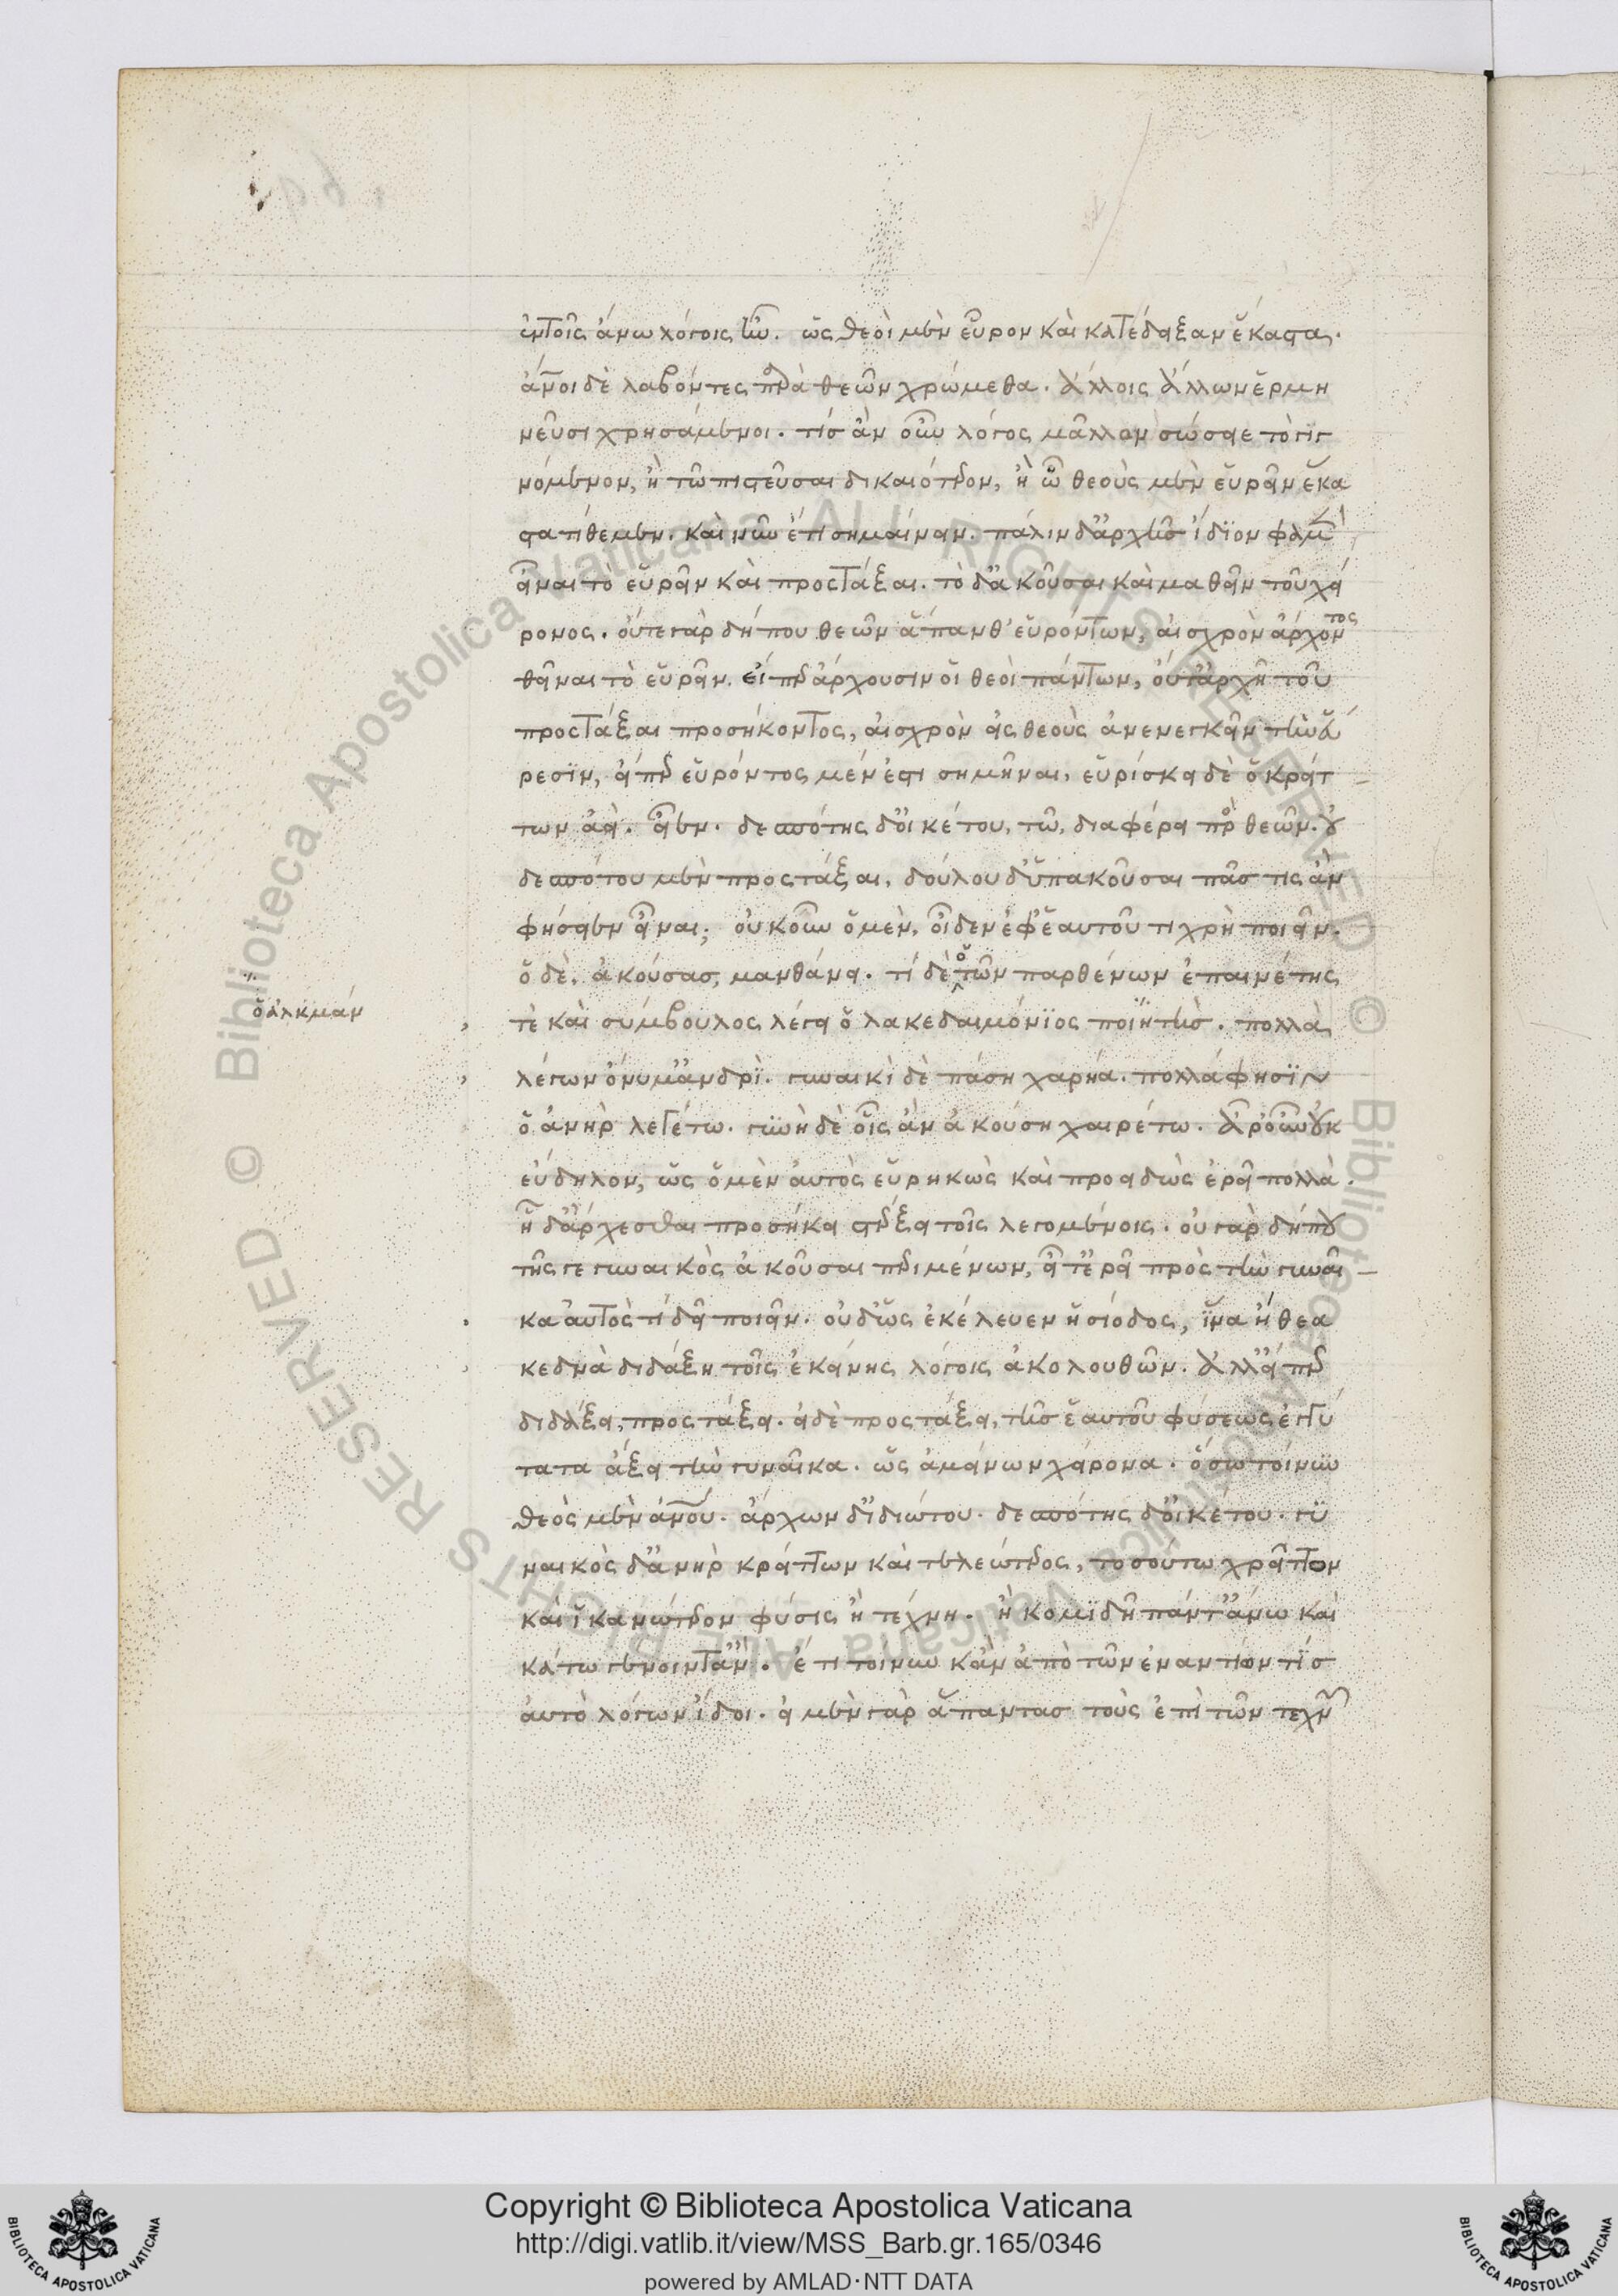 ἐν τοῖς ἄνω λόγοις ἦν. ὡς θεοὶ μὲν εὗρον καὶ κατέδειξαν ἕκαστα.
ἄνοι δὲ λαβόντες παρὰ θεῶν χρώμεθα. ἄλλοις ἄλλων ἑρμη
νεῦσι χρησάμενοι. τίς ἂν οὖν λόγος μᾶλλον σώσειε τὸ γιγ
νόμενον, ἢ τῶ πιστεῦσαι δικαιότερον, ἢ ὦ θεοὺς μὲν εὑρεῖν ἕκα
στα τίθεμεν. καὶ νῦν ἔτι σημαίνειν. πάλιν δ' ἀρχῆς ἴδιον φαμὲν
εἶναι τὸ εὑρεῖν καὶ προστάξαι. τὸ δ' ἀκοῦσαι καὶ μαθεῖν τοῦ χεί
ρονος. οὔτε γὰρ δήπου θεῶν ἅπανθ' εὑρόντων, αἰσχρὸν ἄρχοντος
θεῖναι τὸ εὑρεῖν. εἴπερ ἄρχουσιν οἱ θεοὶ πάντων, οὔτ' ἀρχῆ τοῦ
προστάξαι προσήκοντος, αἰσχρὸν εἰς θεοὺς ἀνενεγκεῖν τὴν εὕ
ρεσιν, εἴπερ εὑρόντος μέν ἐστι σημῆναι, εὑρίσκει δὲ ὁ κρείτ
των ἀεί. εἶεν. δεσπότης δ' οἰκέτου, τῶ, διαφέρει πρὸς θεῶν. οὐ
δεσπότου μὲν προστάξαι, δούλου δ' ὑπακοῦσαι πᾶς τις ἂν
φήσειεν εἶναι; οὐκοῦν ὁ μὲν, οἶδεν ἐφ' ἑαυτοῦ τι χρὴ ποιεῖν.
ὁ δὲ, ἀκούσας, μανθάνει. τί δὲ ὁ τῶν παρθένων ἐπαινέτης
ὁ ἀλκμάν
τὲ καὶ σύμβουλος λέγει ὁ λακεδαιμόνιος ποιητής. πολλὰ
λέγων ὄνυμ' ἀνδρὶ. γυναικὶ δὲ πάση χαρηά. πολλά φησὶν
ὁ ἀνὴρ λεγέτω. γυνὴ δὲ οἷς ἂν ἀκούση χαιρέτω. ἆρ' οὖν οὐκ
εὔδηλον, ὡς ὁ μὲν αὐτὸς εὑρηκὼς καὶ προειδὼς ἐρεῖ πολλὰ.
ἧ δ' ἄρχεσθαι προσήκει στέρξει τοῖς λεγομένοις. οὐ γὰρ δήπου
τῆς γε γυναικὸς ἀκοῦσαι περιμένων, εἶτ' ἐρεῖ πρὸς τὴν γυναῖ
κα αὐτὸς τί δεῖ ποιεῖν. οὐδ' ὣς ἐκέλευεν ἡσίοδος, ἵνα ἤθεα
κεδνὰ διδάξη τοῖς ἐκείνης λόγοις ἀκολουθῶν. ἀλλ' εἴπερ
διδάξει, προστάξει. εἰ δὲ προστάξει, τῆς ἑαυτοῦ φύσεως ἐγγύ
τατα ἄξει τὴν γυναῖκα. ὡς ἀμείνων χείρονα. ὅσω τοίνυν
θεὸς μὲν ἀνου. ἄρχων δ' ἰδιώτου. δεσπότης δ' οἰκέτου. γυ
ναικὸς δ' ἀνὴρ κρείττων καὶ τελεώτερος, τοσούτω χρεῖττον
καὶ ἱκανώτερον φύσις ἢ τέχνη. ἢ κομιδῆ πάντ' ἄνω καὶ
κάτω γένοιντ' ἄν. ἔτι τοίνυν κἂν ἀπὸ τῶν ἐναντίων τίς
αὐτὸ λόγων ἴδοι. εἰ μὲν γὰρ ἅπαντας τοὺς ἐπὶ τῶν τεχνῶν
Copyright © Biblioteca Apostolica Vaticana
http://digi.vatlib.it/view/MSS_Barb.gr.165/0346
powered by AMLAD·NTT DATA